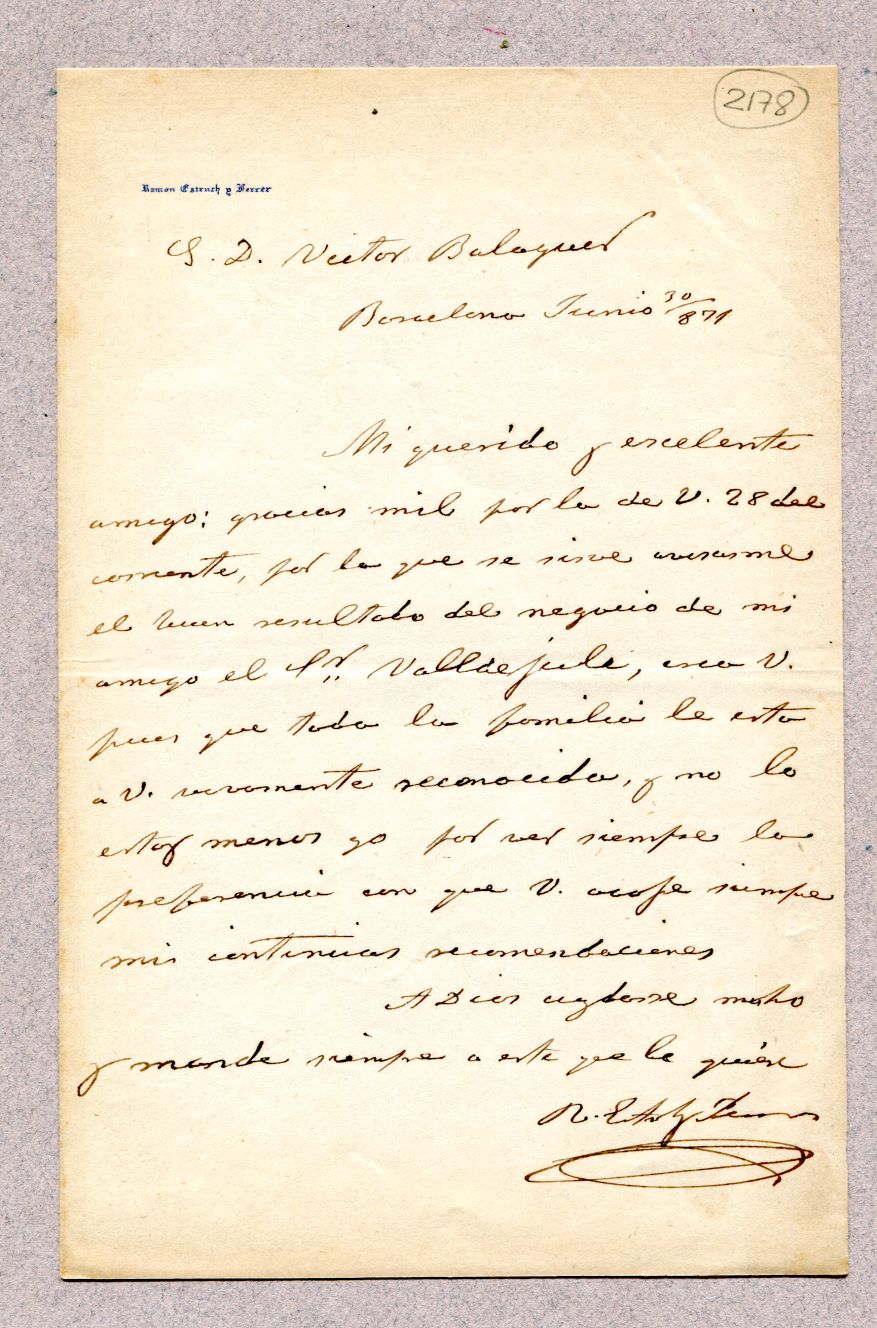 2178
Ramon Estruch y Ferrer
S. D. Victor Balaguer
Barcelona Junio 30/871
Mi querido y escelente
amigo: gracias mil por la de V. 28 del
corriente, por la que se sirve avisarme
el buen resultado del negocio de mi
amigo el Sr. Valldejuli, crea V.
pues que toda la familia le esta
a V. vivamente reconocida, y no lo
estoy menos yo por ver siempre la
preferencia con que V. acoje siempre
mis continuas recomendaciones
A Dios cuydesse mucho
y mande siempre a este que le quiere
R. Estruch y Ferrer